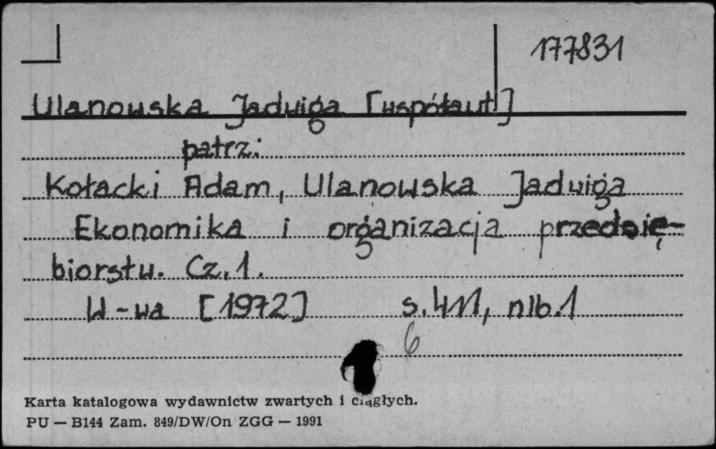 177831
Ulanowska Jadwiga [współaut]
patrz:
Kołacki Adam, Ulanowska Jadwiga
Ekonomika i organizacja przedsię-
biorstw. Cz. 1.
W-wa [1972] s. 411, nlb. 1
6
Karta katalogowa wydawnictw zwartych i ciągłych.
PU — B144 Zam. 849/DW/On ZGG — 1991